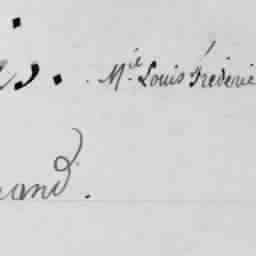 is. Mie Louis Frédéric
and.